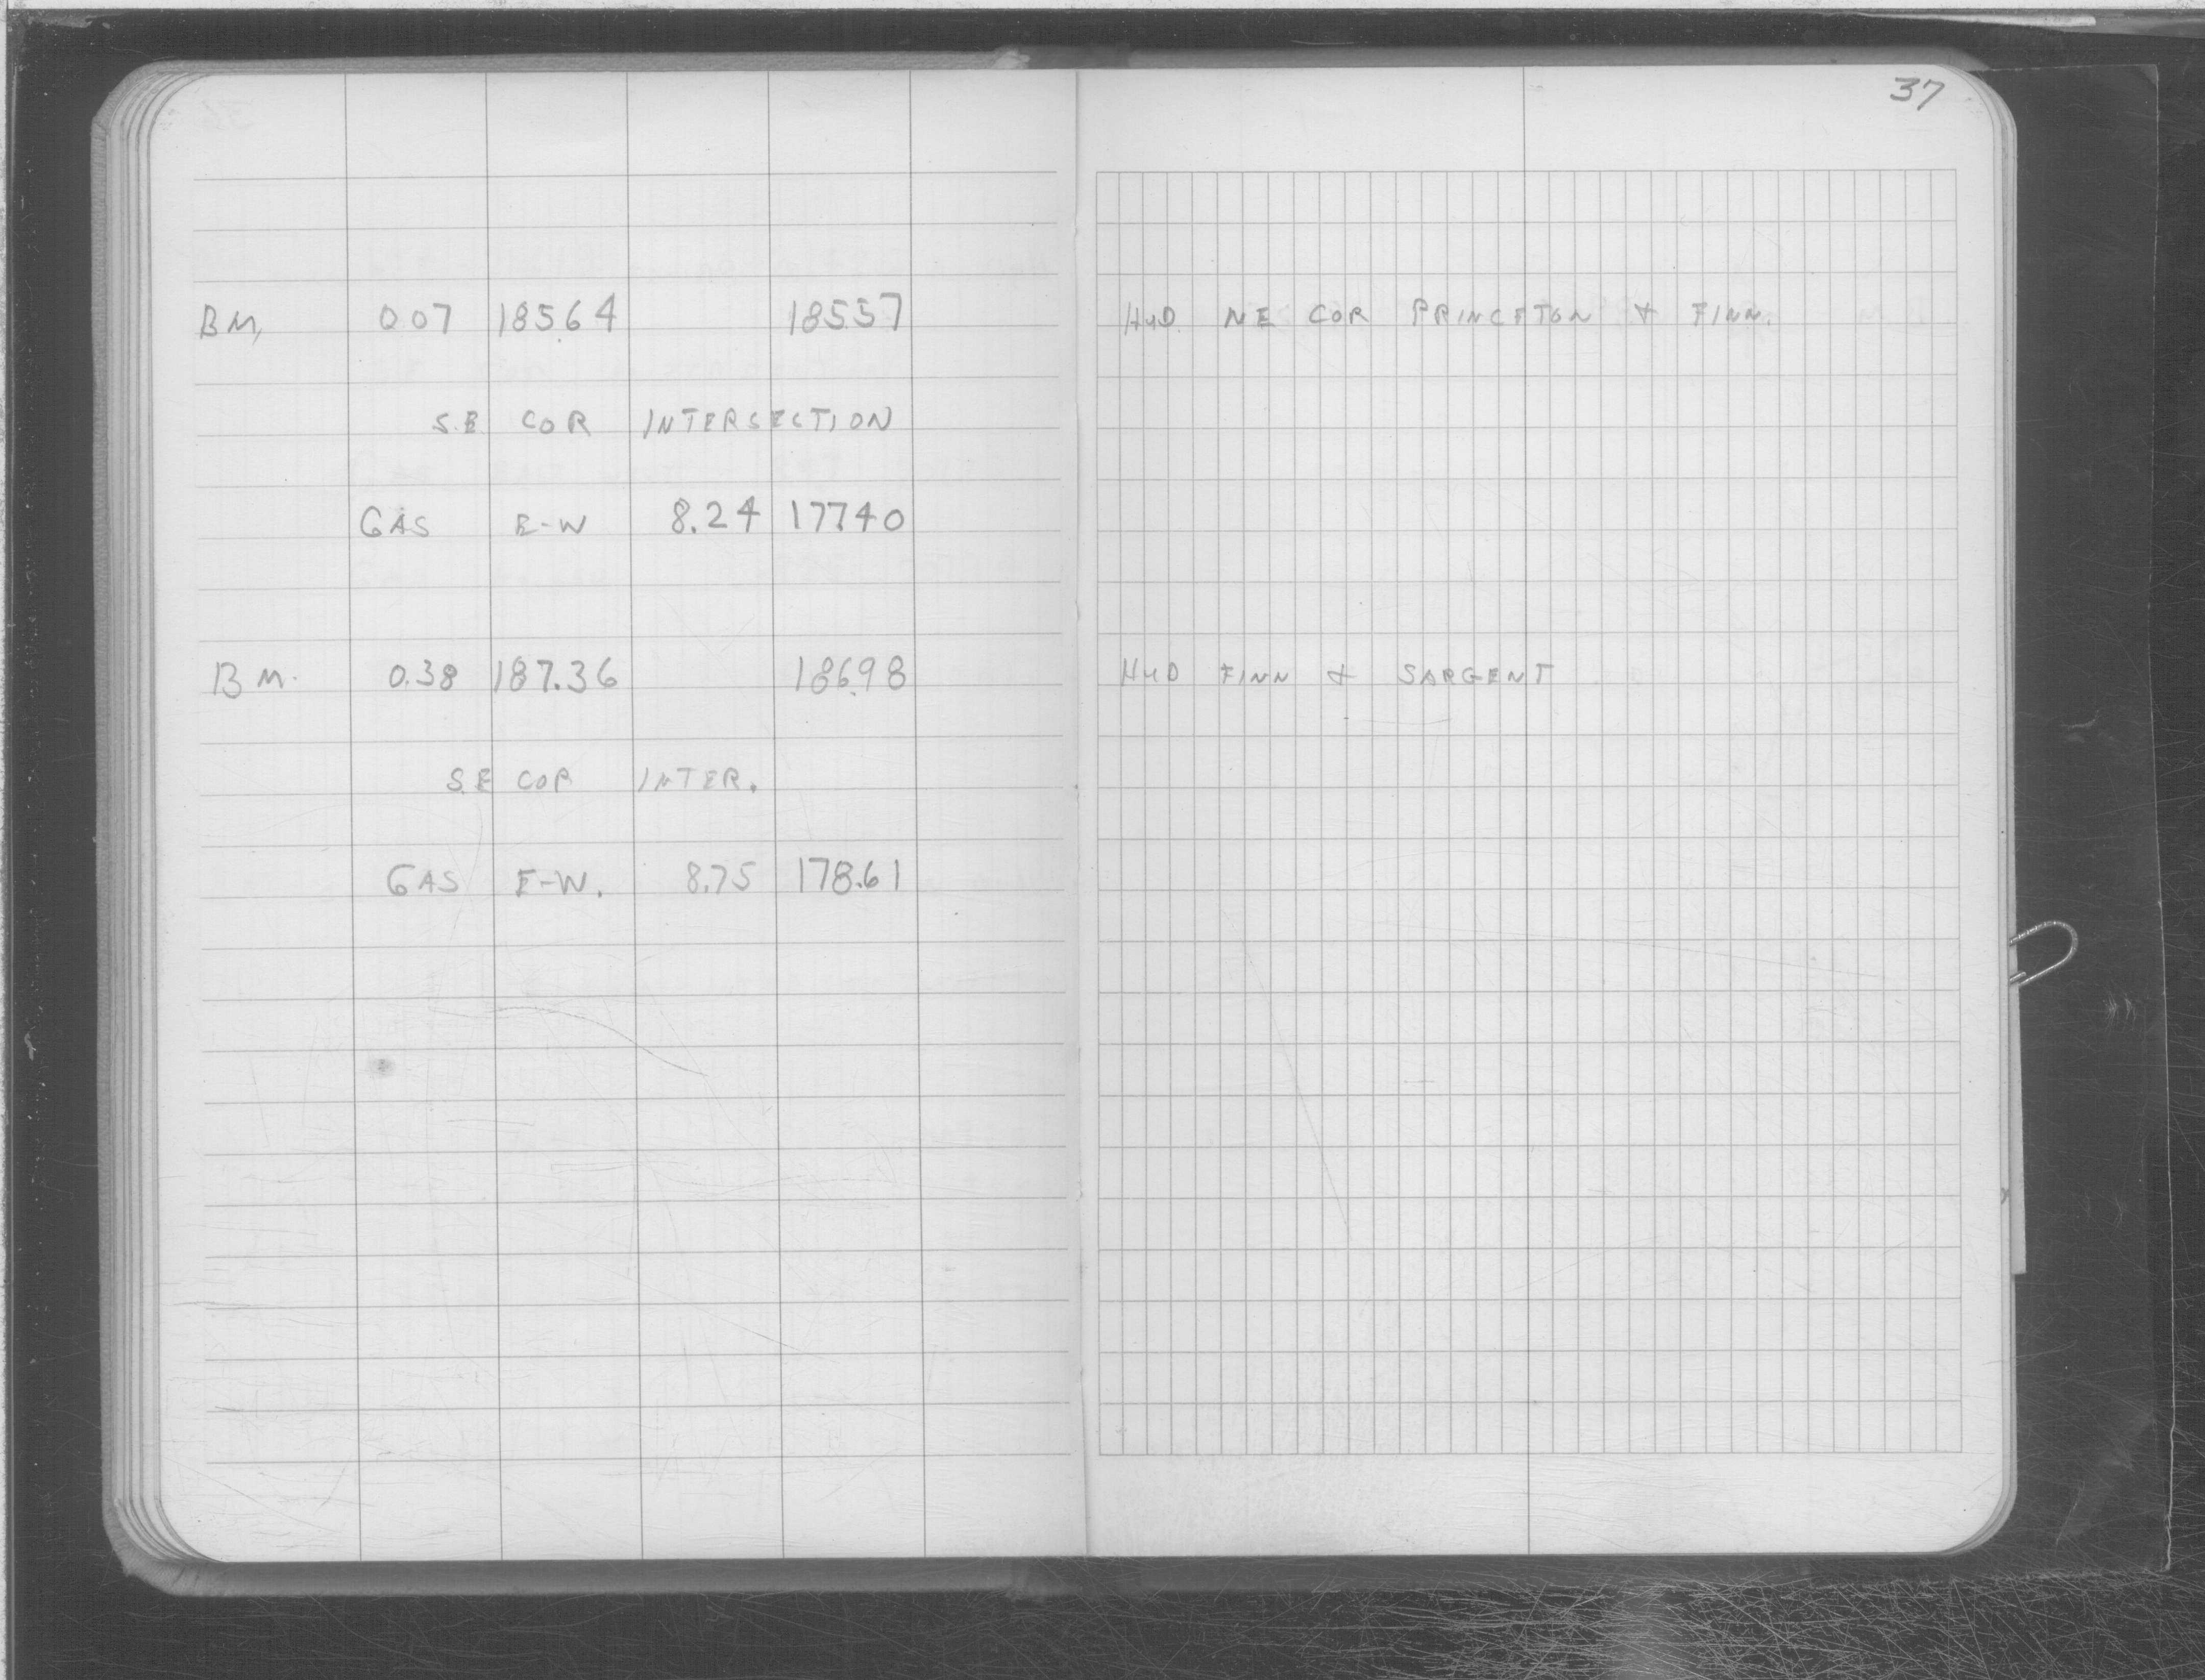 37
BM, 0.07 185.64 185.57 HYD. NE COR PRINCETON & FINN.
S.E COR INTERSECTION
GAS E-W 8.24 177.40
BM. 0.38 187.36 186.98 HYD FINN & SARGENT
S.E COR INTER.
GAS E-W. 8.75 178.61